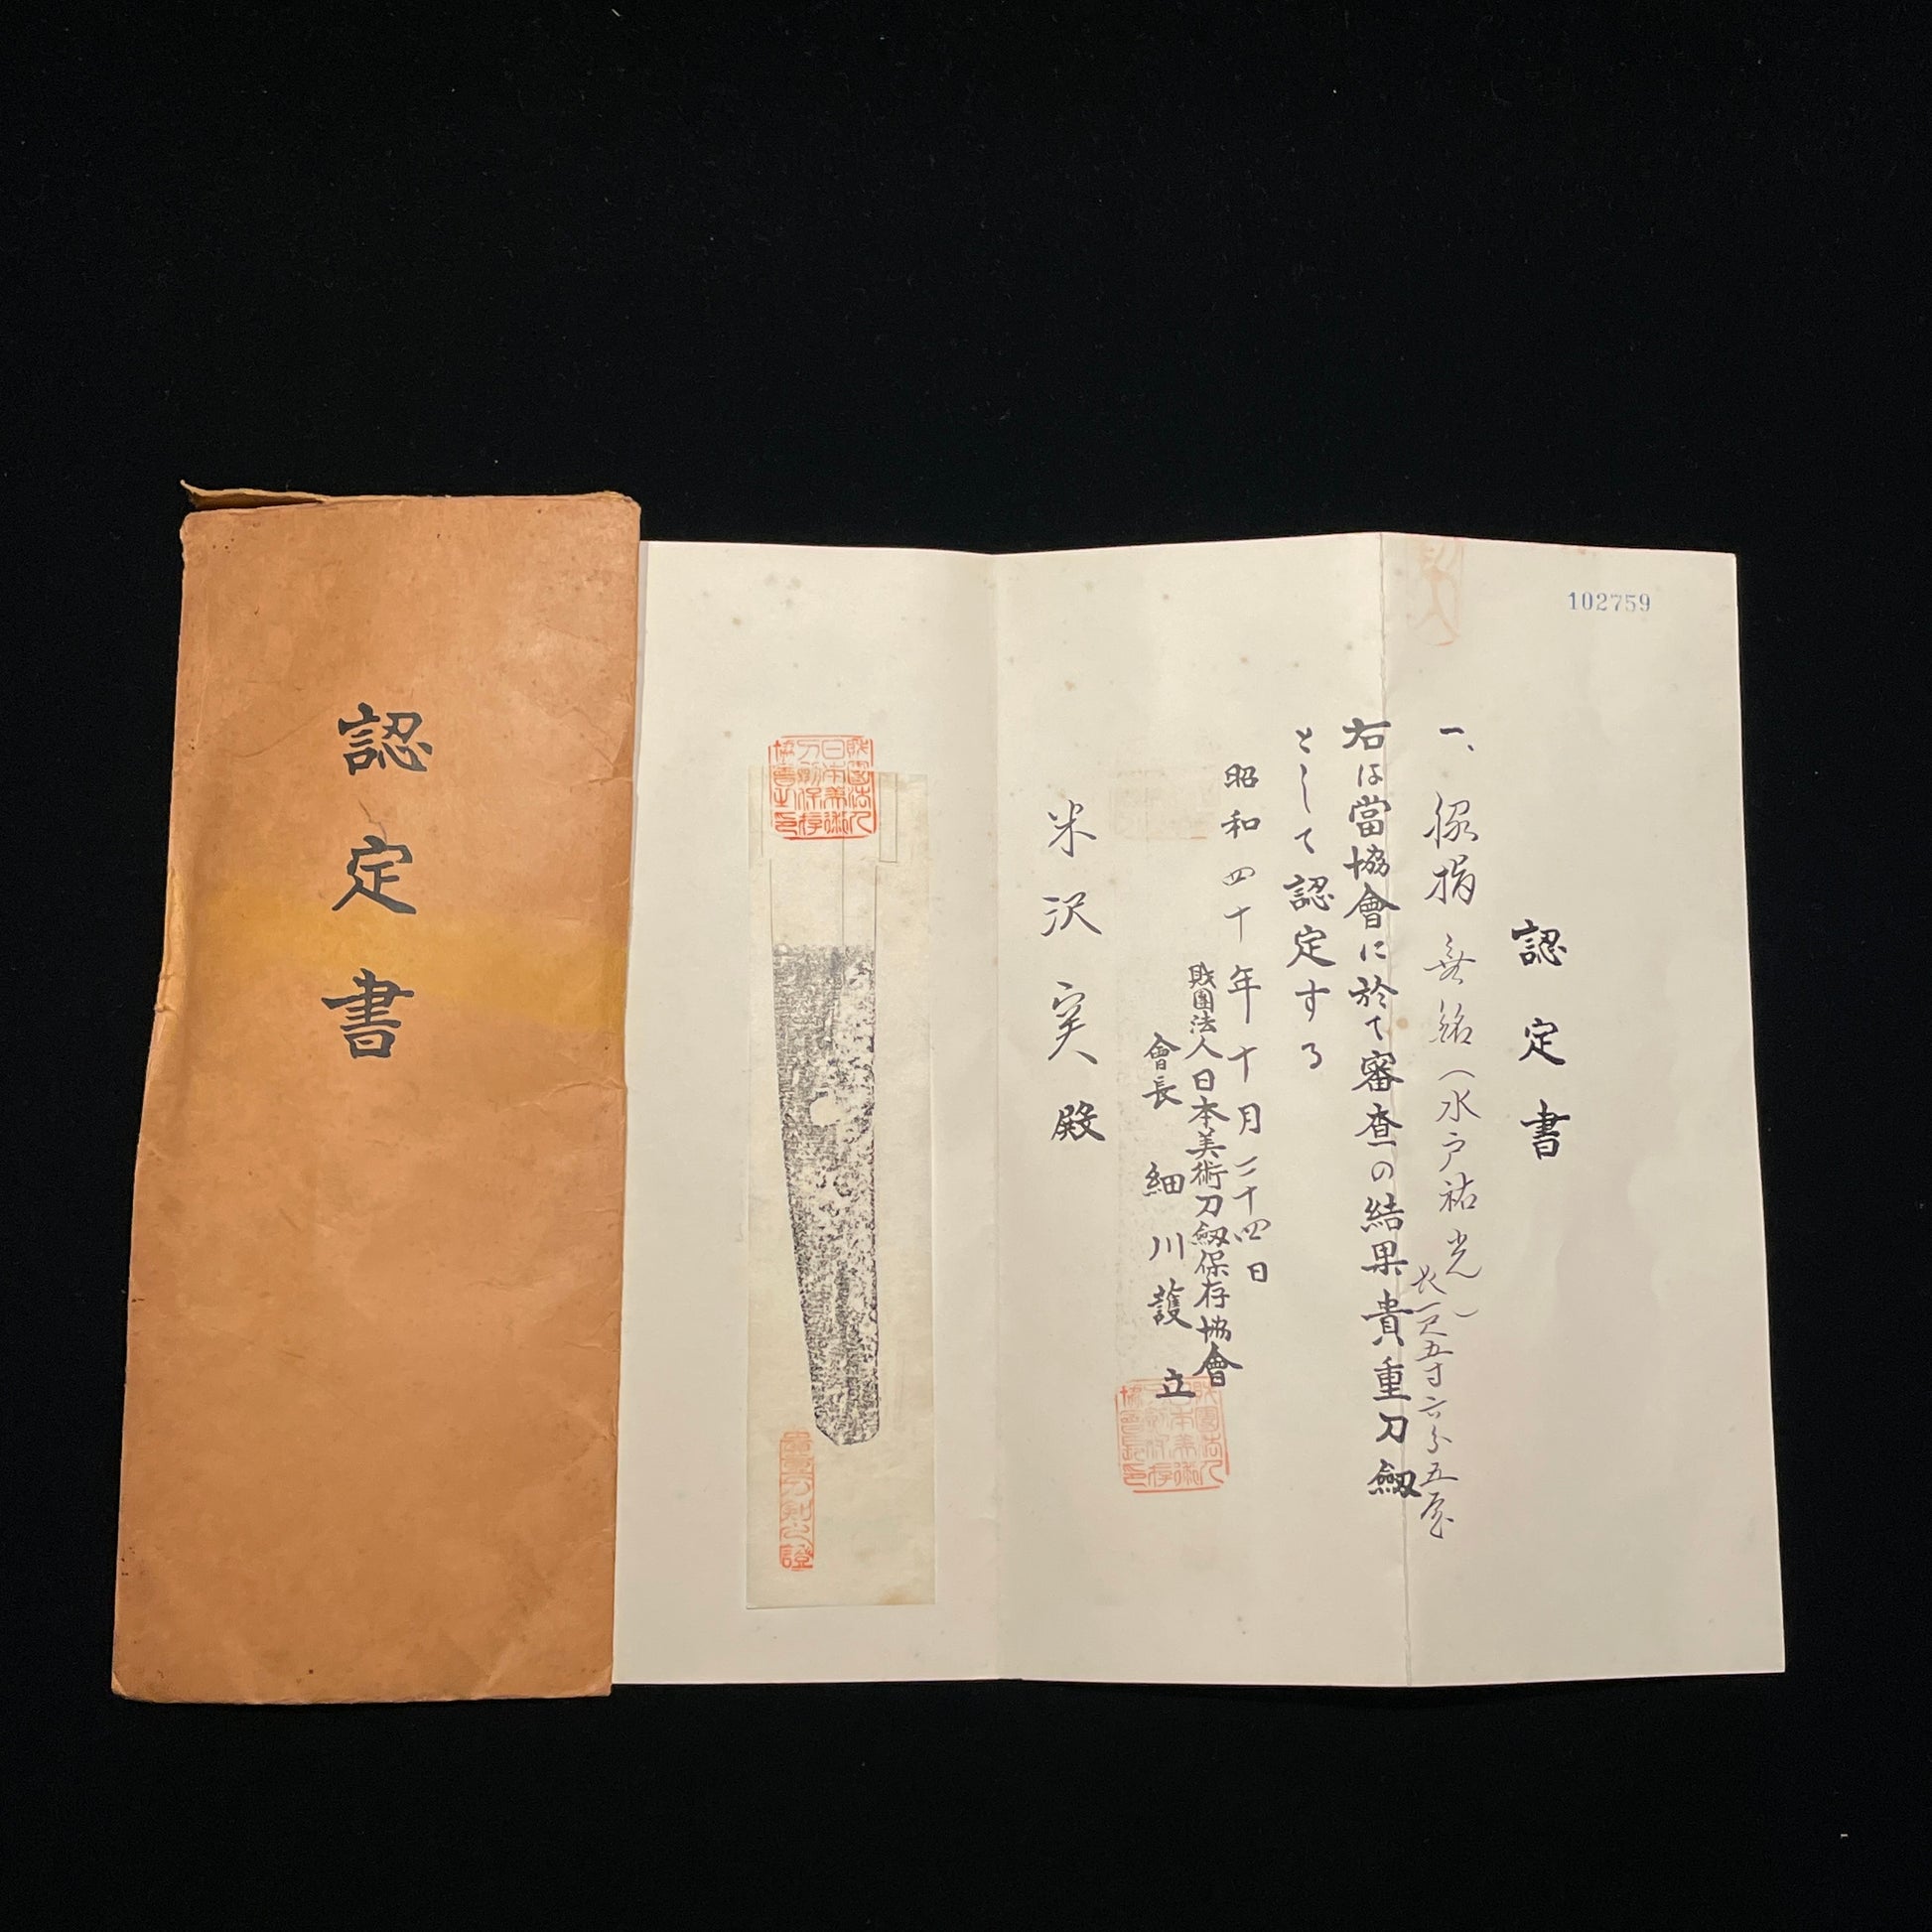 認定書
102759
認定書
一、脇指 無銘(水戸祐光)
長一尺五寸六分五厘
右は當協會に於て審査の結果貴重刀劔
として認定する
昭和四十年十月二十四日
財團法人日本美術刀劔保存協會
會長 細川護立
米沢実殿
財團法人日本美術刀剣保存協會之印
貴重刀剣之證